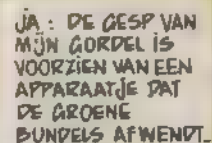 JA : DE GESP VAN
MIJN GORDEL IS
VOORZIEN VAN EEN
APPARAATJE DAT
DE GROENE
BUNDELS AFWENDT_